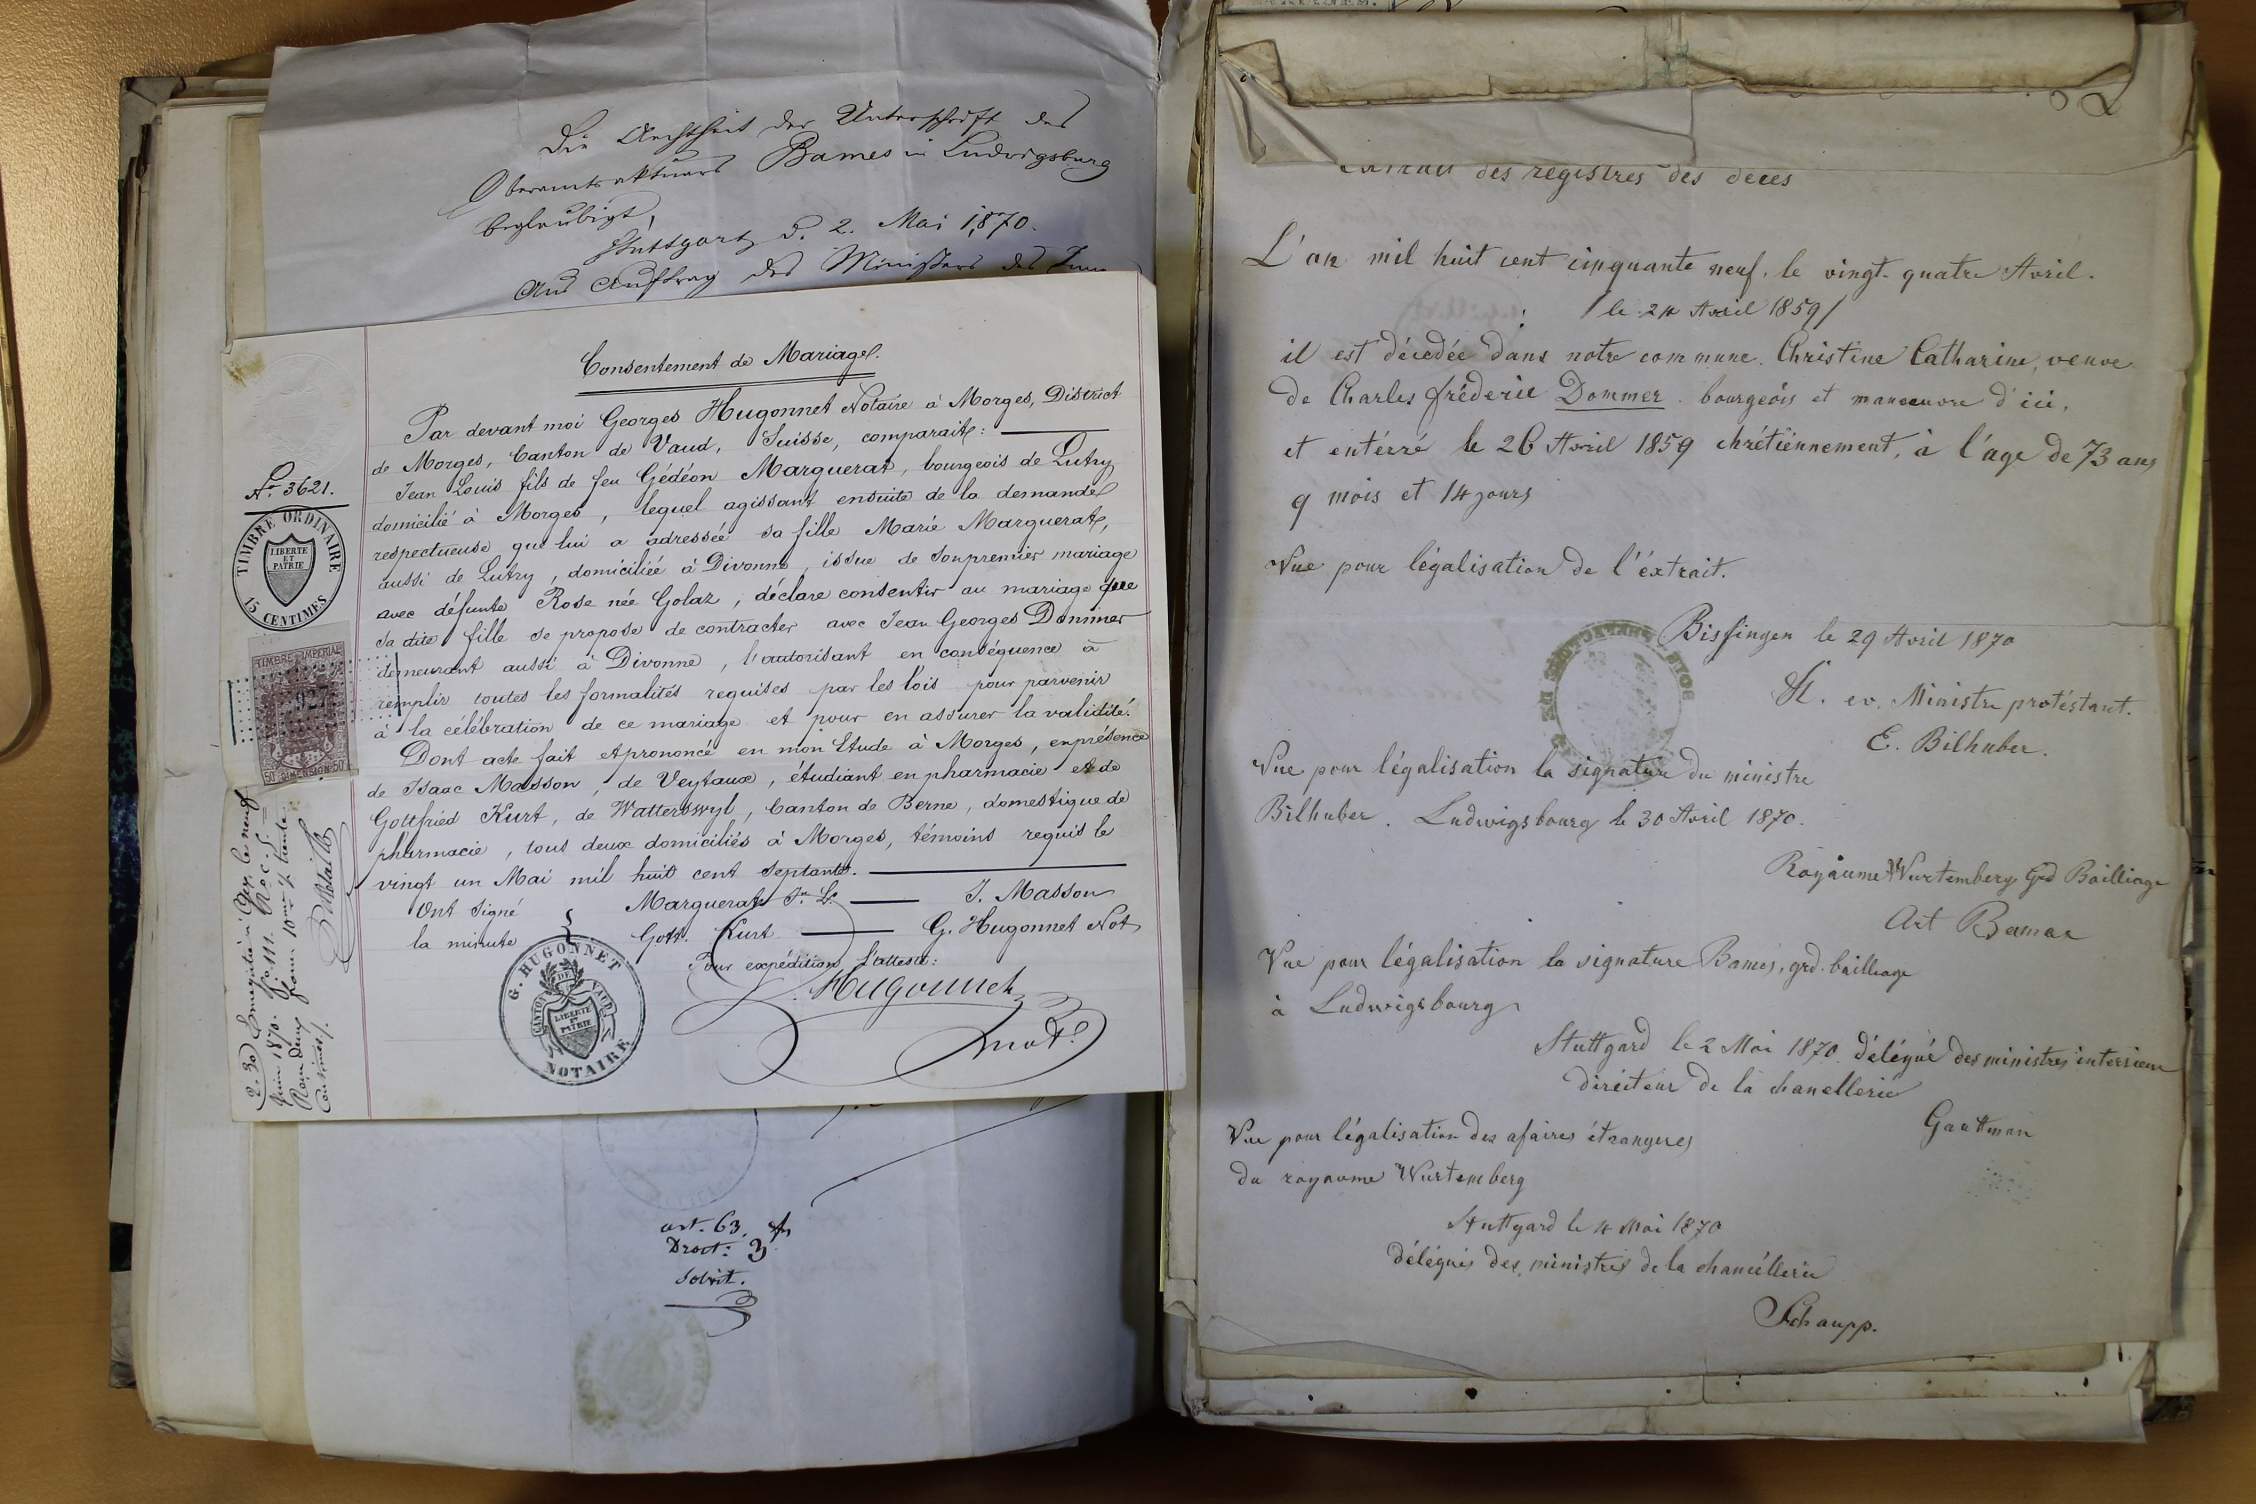 Die Aechtheit der Unterschrift des
Oberamtsaktuars Bames in Ludwigsburg
beglaubigt,
Stuttgart d. 2. Mai 1870.
Aus Auftrag des Ministers des
Consentement de Mariage.
Par devant moi Georges Hugonnet Notaire à Morges, District
de Morges, Canton de Vaud, Suisse, comparait:
Jean Louis fils de feu Gédéon Marguerat, bourgeois de Lutry
domicilié à Morges, lequel agissant ensuite de la demande
respectueuse que lui a adressée sa fille Marie Marguerat,
aussi de Lutry, domiciliée à Divonne, issue de son premier mariage
avec défunte Rose née Golaz, déclare consentir au mariage que
sa dite fille se propose de contracter avec Jean Georges Dommer
demeurant aussi à Divonne, l'autorisant en conséquence à
remplir toutes les formalités requises par les lois pour parvenir
à la célébration de ce mariage et pour en assurer la validité.
Dont acte fait et prononcé en mon Etude à Morges, en présence
de Isaac Masson, de Veytaux, étudiant en pharmacie et de
Gottfried Kurt, de Watterswyl, Canton de Berne, domestique de
pharmacie, tous deux domiciliés à Morges, témoins requis le
vingt un Mai mil huit cent septante.
Ont signé Marguerat Jn Ls J. Masson
la minute Gott. Kurt G. Hugonnet Not
Pour expédition l'atteste:
Hugonnet
not.
No 3621.
TIMBRE ORDINAIRE
LIBERTE
ET
PATRIE
15 CENTIMES
TIMBRE IMPERIAL
927
50 DIMENSION 50
2.30 Enregistré à Gex le neuf
Juin 1870. fo 111. Ro c. 5.
centimes.
G. HUGONNET
CANTON DE VAUD
LIBERTE
ET
PATRIE
NOTAIRE
art. 63.
Droit: 3
Extrait des registres des décès
L'an mil huit cent cinquante neuf. le vingt-quatre Avril.
/ le 24 Avril 1859/
il est décedée dans notre commune. Christine Catharine, veuve
de Charles fréderic Dommer. bourgeois et manoeuvre d'ici,
et entérré le 26 Avril 1859 chrétiennement, à l'áge de 73 ans
9 mois et 14 jours
Vue pour légalisation de l'éxtrait.
Bissingen le 29 Avril 1870
St. ev. Ministre protéstant.
E. Bilhuber.
Vue pour légalisation la signature du ministre
Bilhuber. Ludwigsbourg le 30 Avril 1870.
Royaume Wurtemberg Grd Bailliage
Act Bames
Vue pour légalisation la signature Bames, grd. bailliage
à Ludwigsbourg
Stuttgard le 2 Mai 1870. délégué des ministres interieur
diréiteur de la chanellerie
Gauttman
Vue pour légalisation des afaires étrangeres
du royaume Wurtemberg
Stuttgard le 4 Mai 1870
délégués des ministres de la chancéllerie
Schaupp.